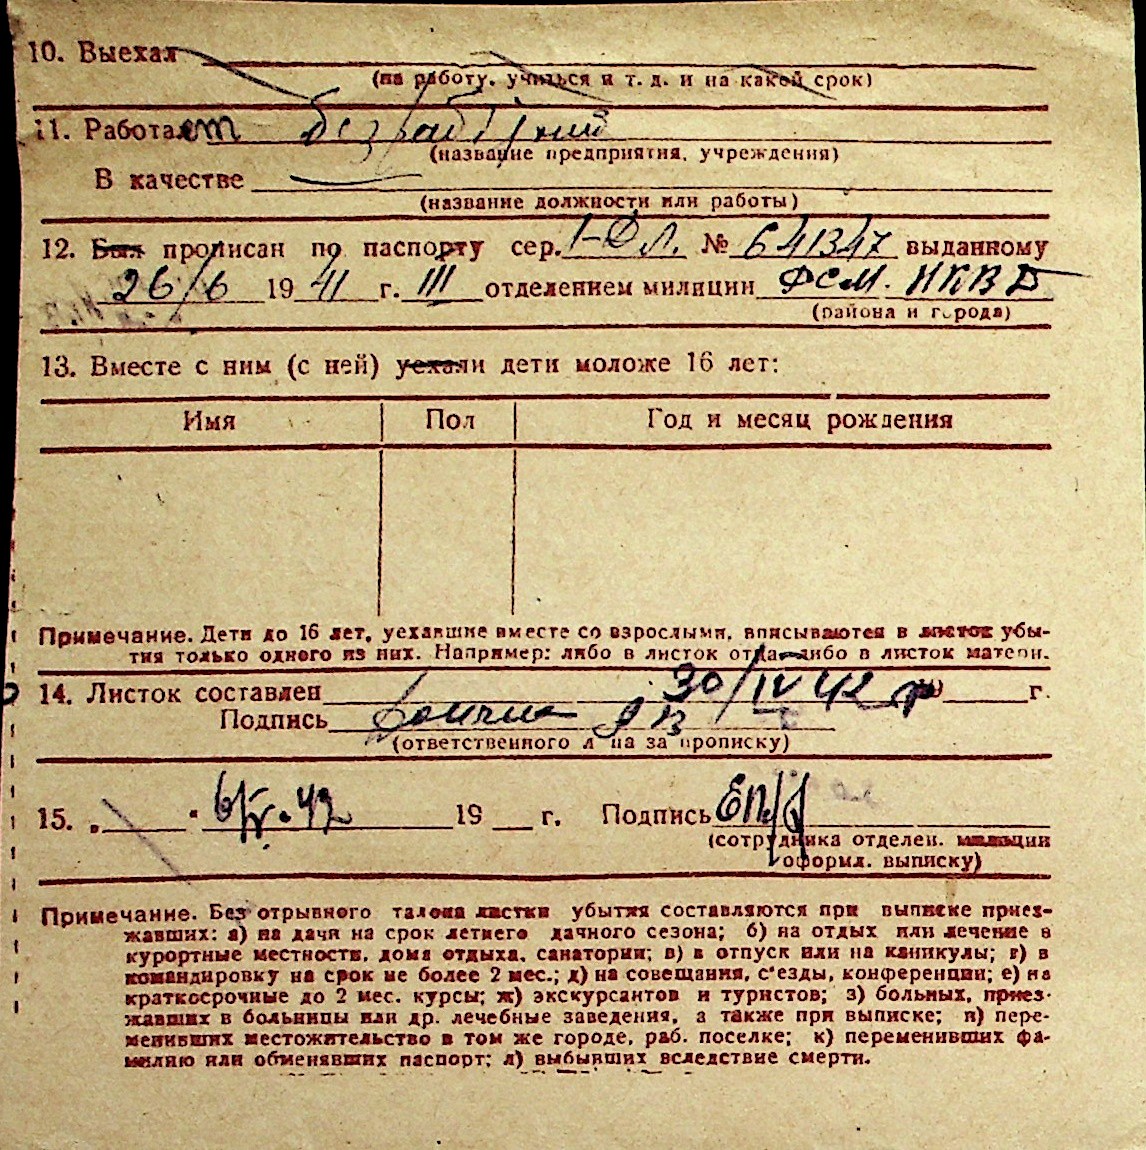 10. Выехал
(на работу, учиться и т. д. и на какой срок)
11. Работает безработный
(название предприятия, учреждения)
В качестве
(название должности или работы)
12. Был прописан по паспорту сер. I-ОЛ. № 641347 выданному
26/6 1941 г. III отделением милиции ФСМ. НКВД
(района и города)
13. Вместе с ним (с ней) уехали дети моложе 16 лет:
Имя Пол Год и месяц рождения
Примечание. Дети до 16 лет, уехавшие вместе со взрослыми, вписываются в листок убы-
тия только одного из них. Например: либо в листок отца либо в листок матери.
14. Листок составлен 30/IV 42 г.
Подпись
(ответственного л на за прописку)
15. „ " 6/V.42 19 г. Подпись
(сотрудника отделен. милиции
оформл. выписку)
Примечание. Без отрывного талона листки убытия составляются при выписке приез-
жавших: а) на дачи на срок летнего дачного сезона; б) на отдых или лечение в
курортные местности, дома отдыха, санатории; в) в отпуск или на каникулы; г) в
командировку на срок не более 2 мес.; д) на совещания, с'езды, конференции; е) на
краткосрочные до 2 мес. курсы; ж) экскурсантов и туристов; з) больных, приез-
жавших в больницы или др. лечебные заведения, а также при выписке; и) пере-
менивших местожительство в том же городе, раб. поселке; к) переменивших фа-
милию или обменявших паспорт; л) выбывших вследствие смерти.